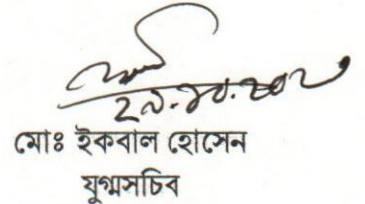 মোঃ ইকবাল হোসেন
যুগ্মসচিব